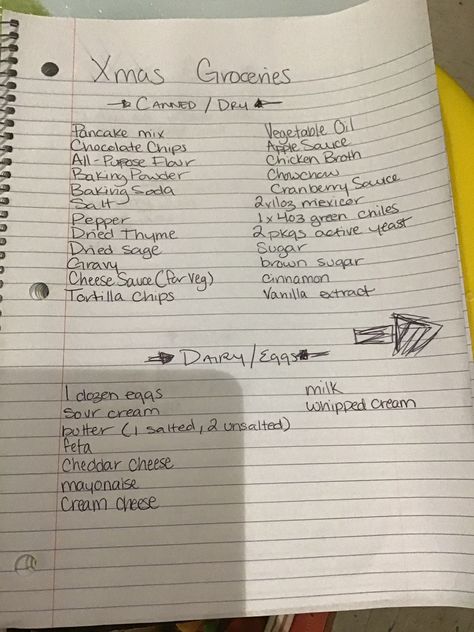 Xmas Groceries
Canned / Dry
Pancake mix
Chocolate Chips
All-Purpose Flour
Baking Powder
Baking Soda
Salt
Pepper
Dried Thyme
Dried sage
Gravy
Cheese Sauce (for veg)
Tortilla Chips
Vegetable Oil
Apple Sauce
Chicken Broth
Chowchow
Cranberry Sauce
2x11oz mexicor
1x4oz green chiles
2 pkgs active yeast
Sugar
brown sugar
cinnamon
Vanilla extract
Dairy/Eggs
1 dozen eggs
sour cream
butter (1 salted, 2 unsalted)
feta
cheddar cheese
mayonaise
cream cheese
milk
whipped cream